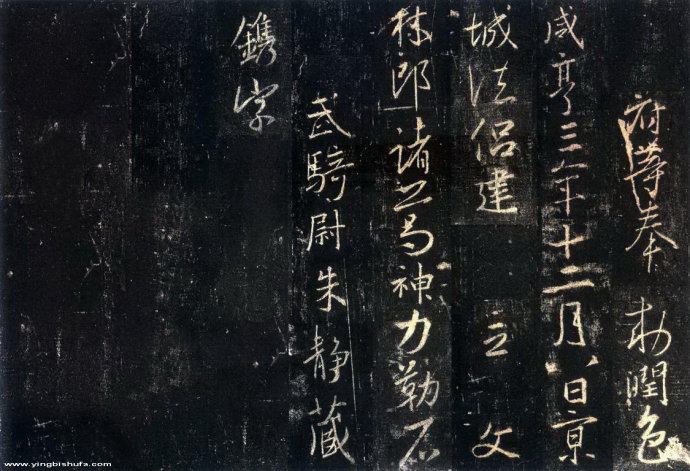 府等奉 勑潤色
咸亨三年十二月八日京
城法侣建 立 文
林郎諸葛神力勒石
武騎尉朱静藏
鐫字
www.yingbishufa.com